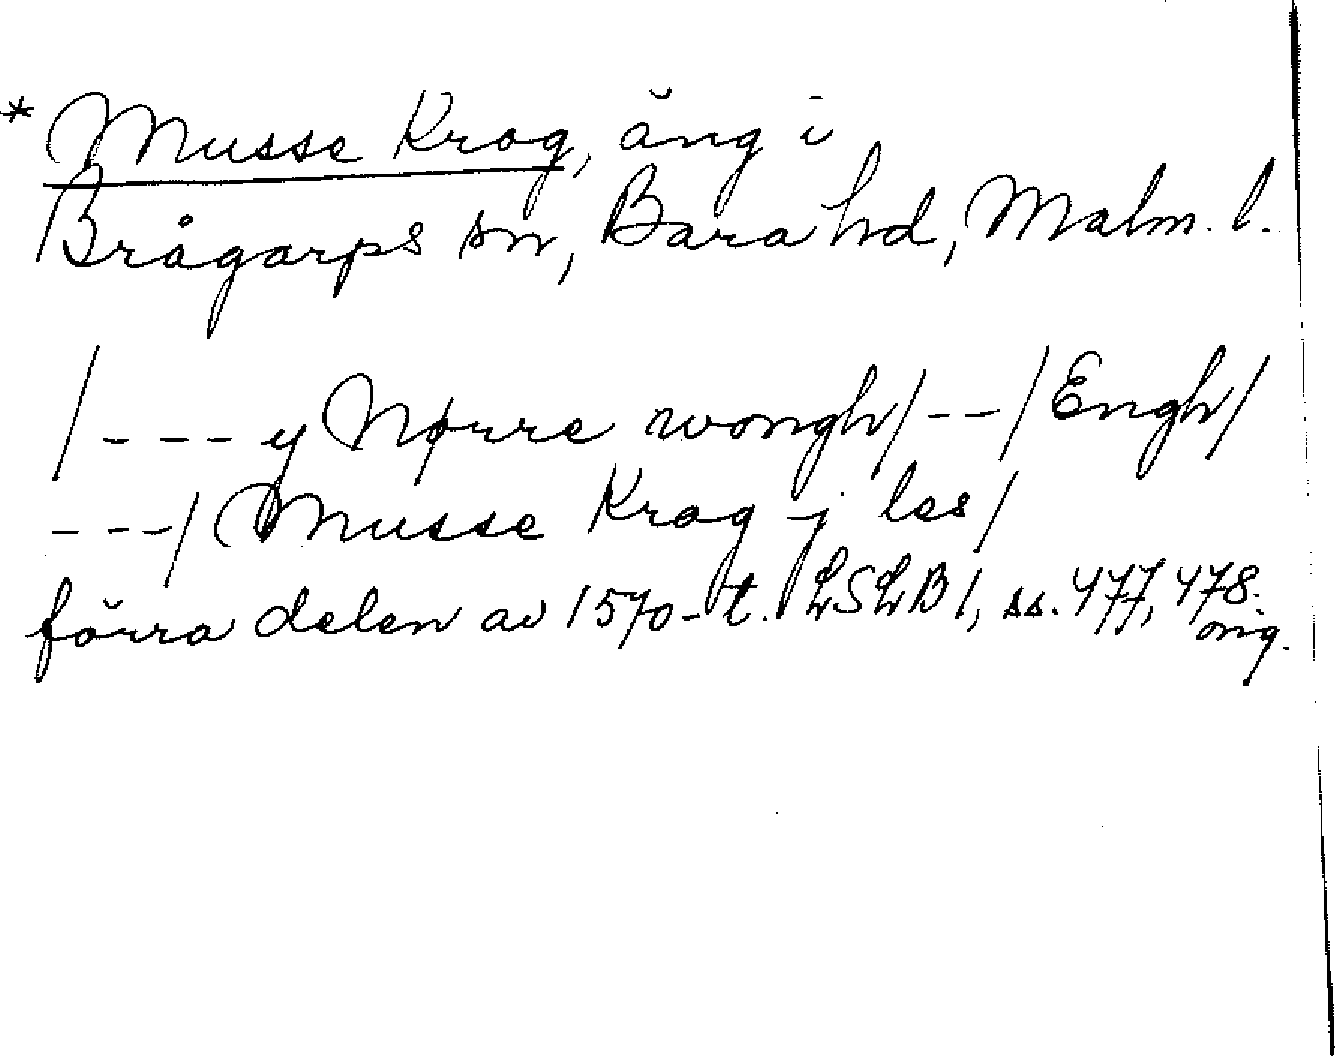 * Musse Krog, äng i
Brågarps sn, Bara hd, Malm. l.
/---y Nørre wongh/--/Engh/
---/Musse Krog j les/
förra delen av 1570-t. LSLB 1, ss. 477, 478.
orig.